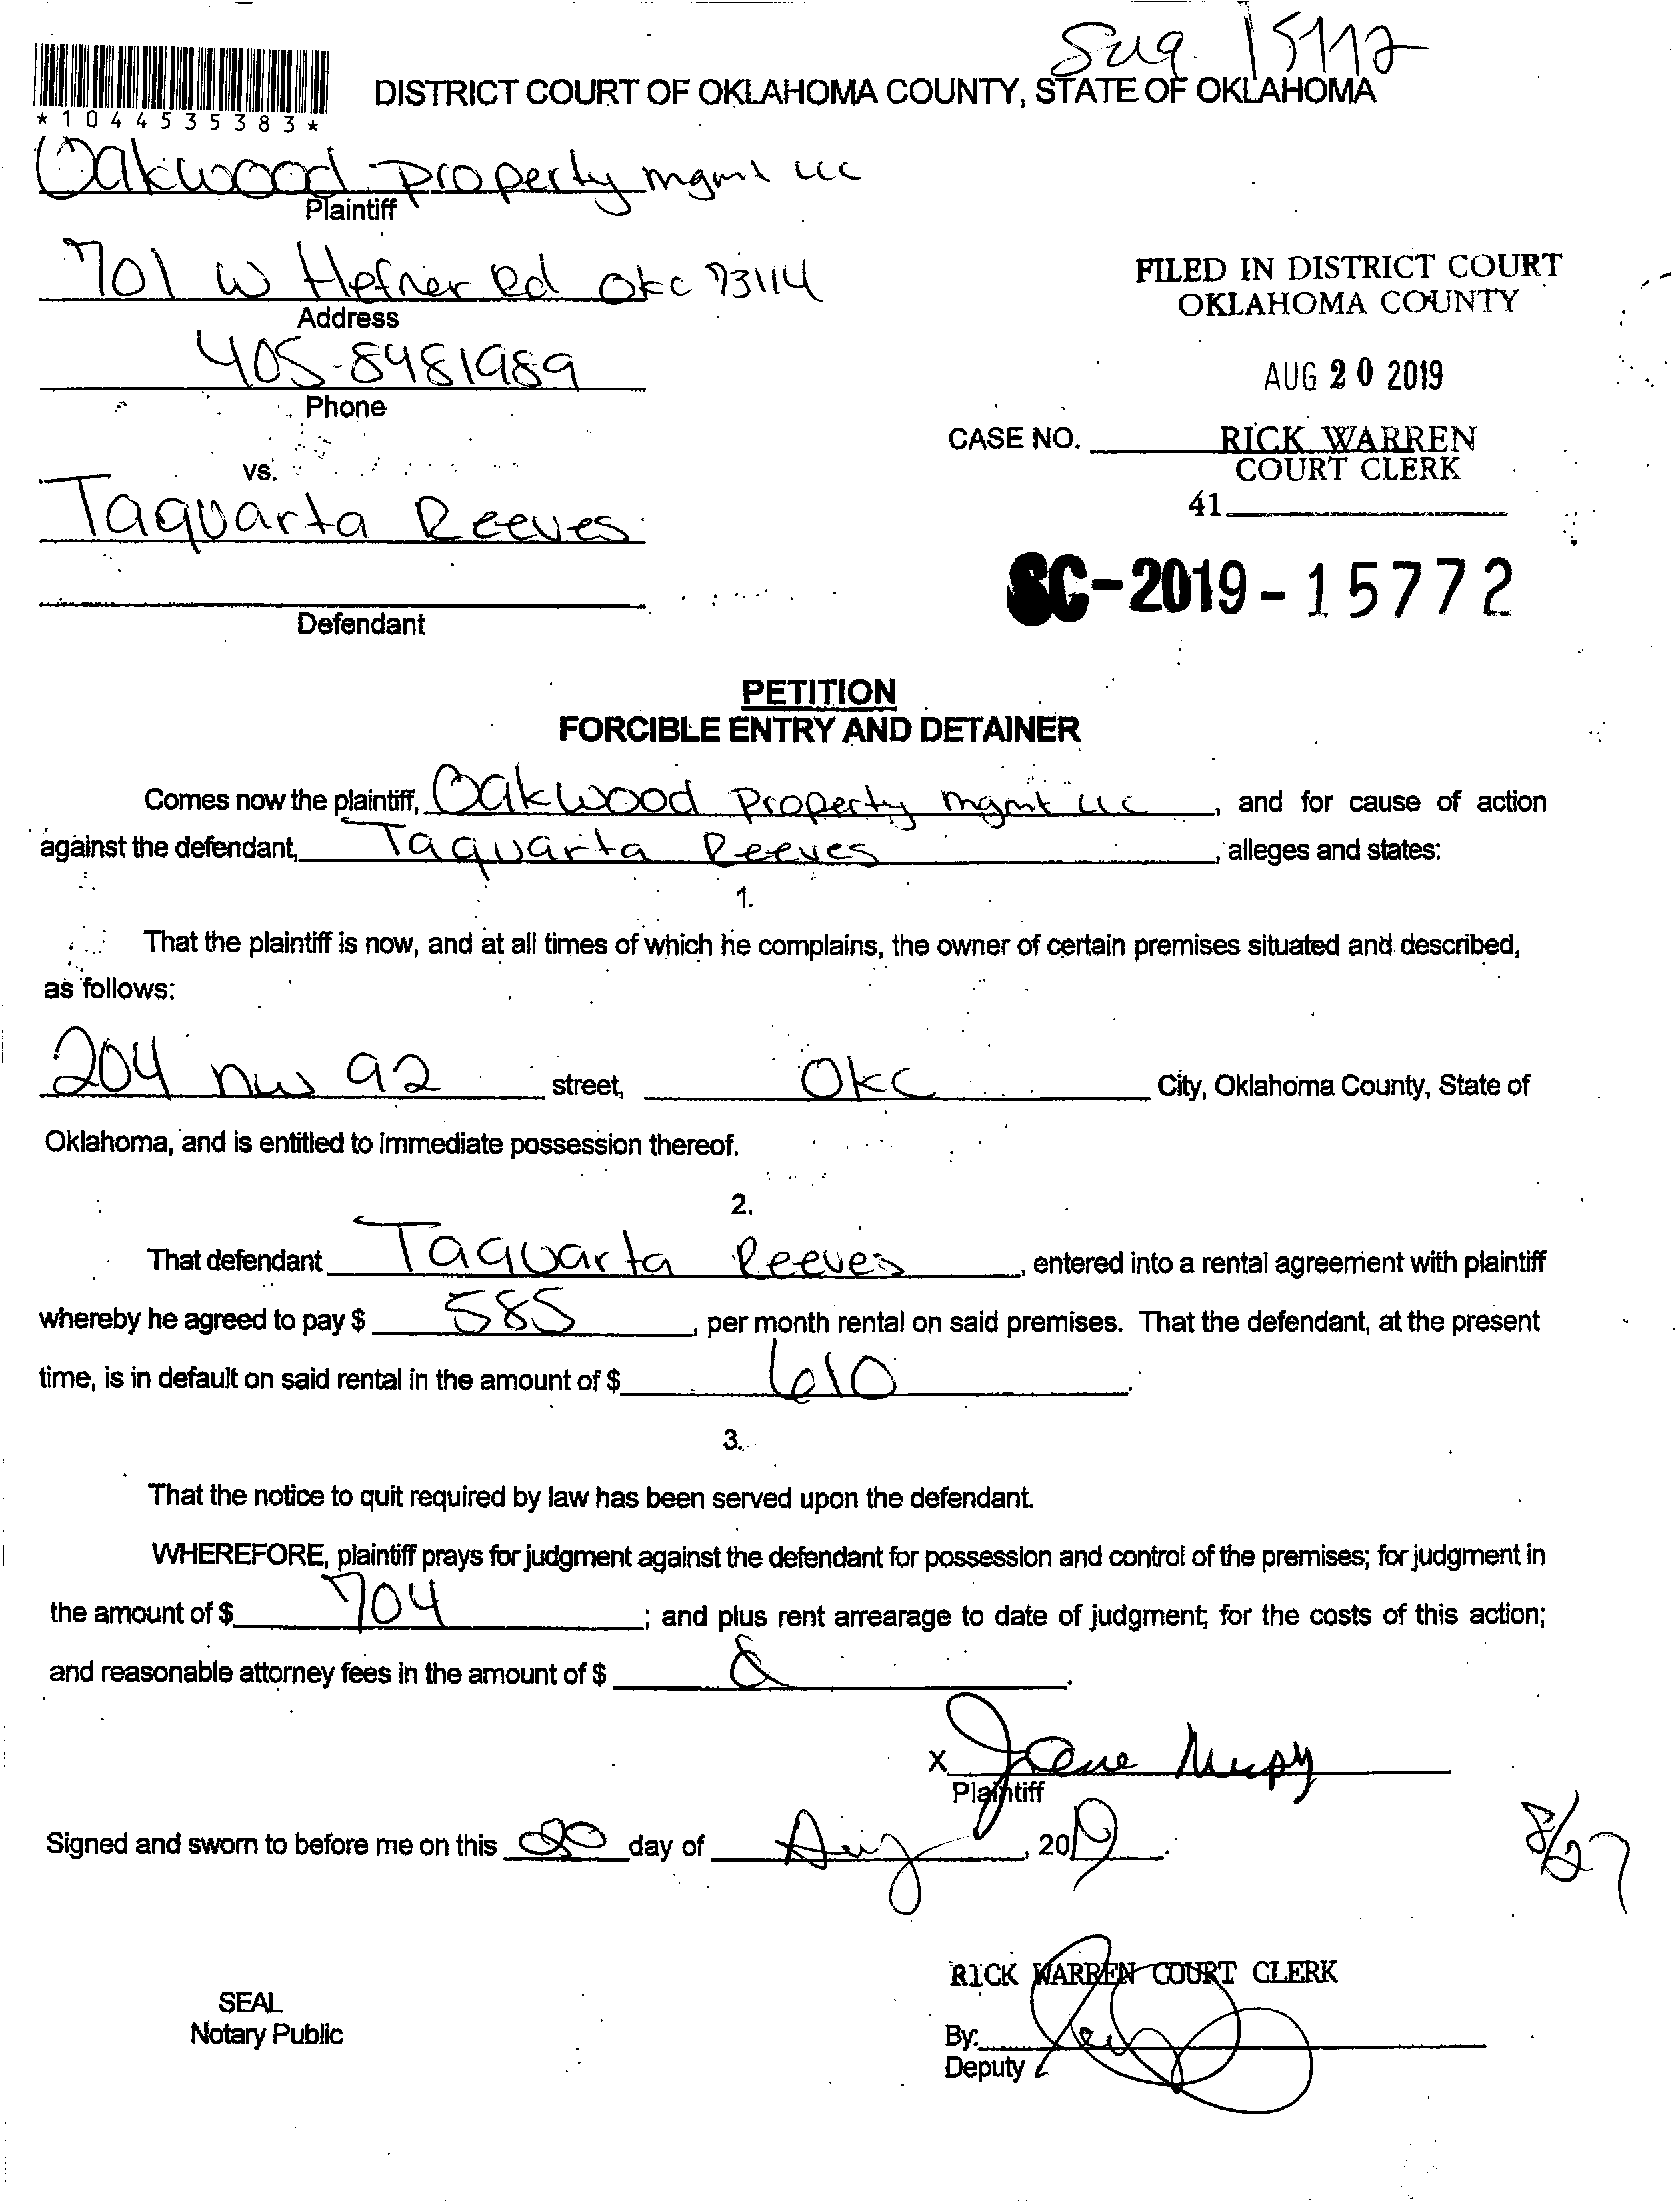 DISTRICT COURT OF OKLAHOMA COUNTY, STATE OF OKLAHOMA
*1044535383*
Oakwood Property mgmt llc
Plaintiff
701 W Hefner Rd Okc 73114
Address
FILED IN DISTRICT COURT
OKLAHOMA COUNTY
405-8481989
Phone
AUG 20 2019
CASE NO.
RICK WARREN
COURT CLERK
41
vs.
Taquarta Reeves
SC-2019-15772
Defendant
PETITION
FORCIBLE ENTRY AND DETAINER
Comes now the plaintiff, Oakwood Property mgmt llc, and for cause of action
against the defendant, Taquarta Reeves, alleges and states:
1.
That the plaintiff is now, and at all times of which he complains, the owner of certain premises situated and described,
as follows:
204 nw 92 street, Okc City, Oklahoma County, State of
Oklahoma, and is entitled to immediate possession thereof.
2.
That defendant Taquarta Reeves, entered into a rental agreement with plaintiff
whereby he agreed to pay $ 585, per month rental on said premises. That the defendant, at the present
time, is in default on said rental in the amount of $ 610.
3.
That the notice to quit required by law has been served upon the defendant.
WHEREFORE, plaintiff prays for judgment against the defendant for possession and control of the premises; for judgment in
the amount of $ 704; and plus rent arrearage to date of judgment; for the costs of this action;
and reasonable attorney fees in the amount of $
X
Plaintiff
Signed and sworn to before me on this 20 day of Aug, 2019.
8/27
RICK WARREN COURT CLERK
SEAL
Notary Public
By:
Deputy